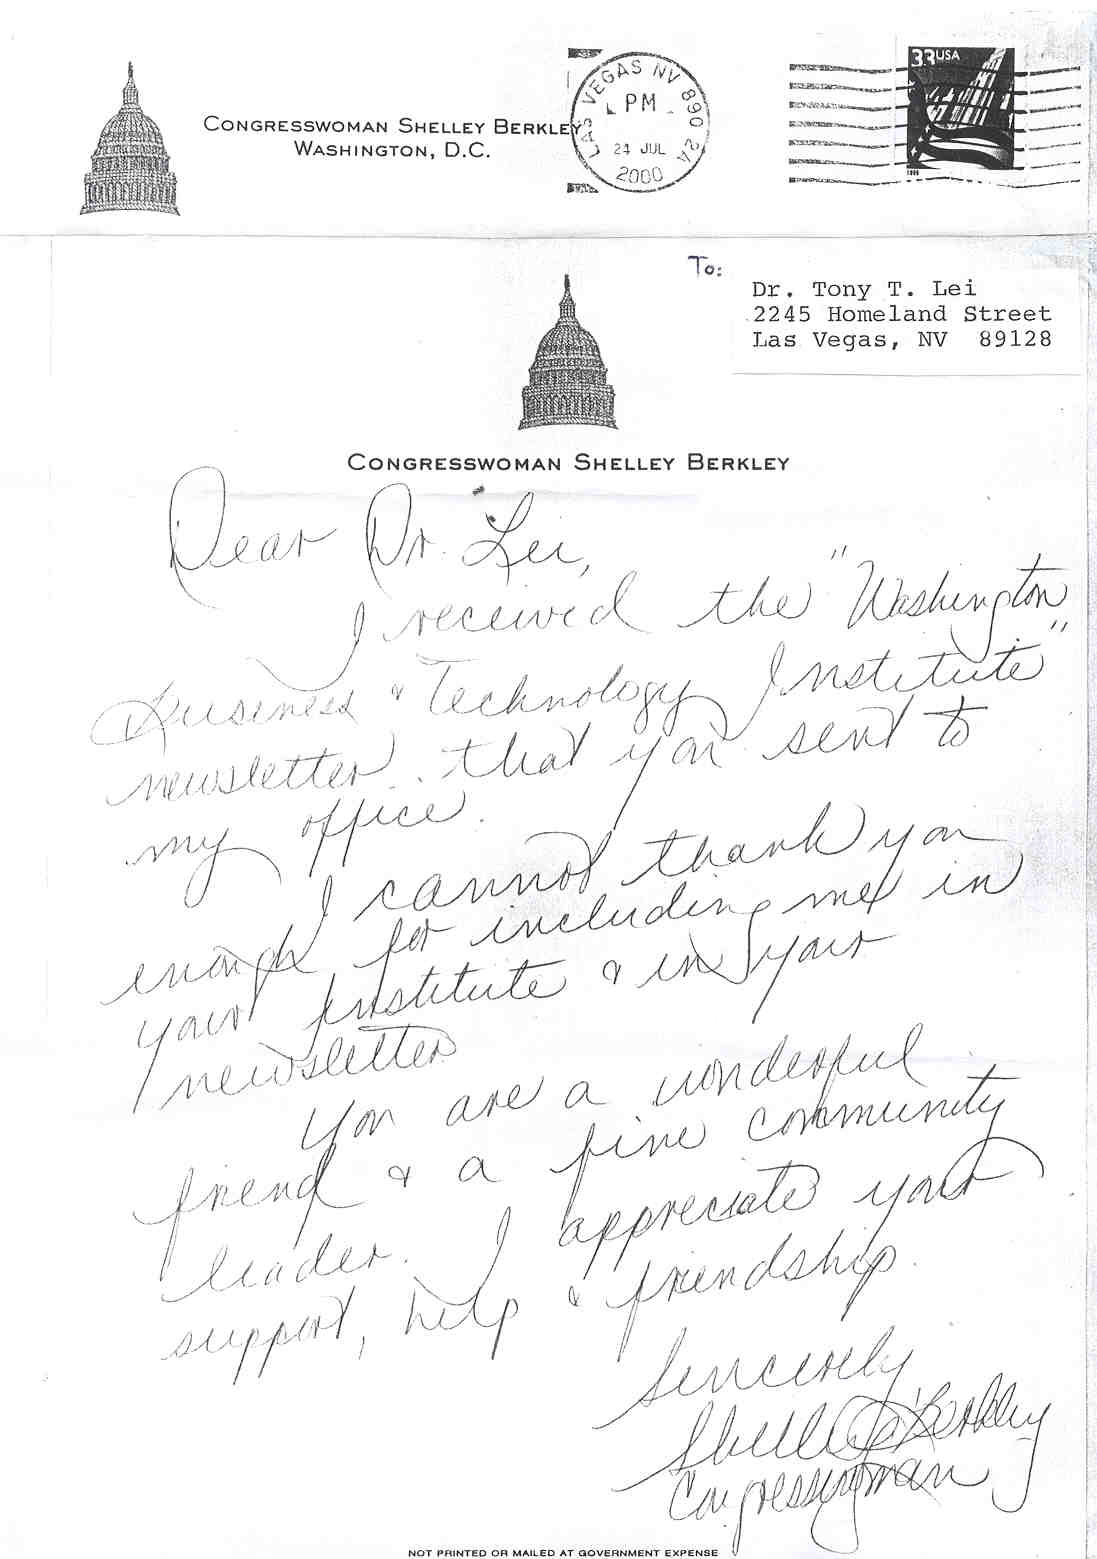 CONGRESSWOMAN SHELLEY BERKLEY
WASHINGTON, D.C.
LAS VEGAS NV 890 2A
PM
24 JUL
2000
33USA
1999
To:
Dr. Tony T. Lei
2245 Homeland Street
Las Vegas, NV 89128
CONGRESSWOMAN SHELLEY BERKLEY
Dear Dr. Lei,
I received the "Washington
Business & Technology Institute"
newsletter that you sent to
my office.
I cannot thank you
enough for including me in
your Institute & in your
newsletter
You are a wonderful
friend & a fine community
leader. I appreciate your
support, help & friendship.
Sincerely
Shelley Berkley
Congresswoman
NOT PRINTED OR MAILED AT GOVERNMENT EXPENSE